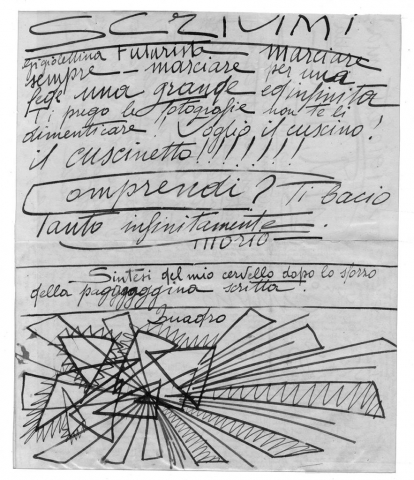 SCRIVIMI
Futurista — marciare
sempre — marciare per una
fede una grande ed infinita
Ti prego le fotografie non te li
dimenticare! Voglio il cuscino!
il cuscinetto!!!!!!!
Comprendi? Ti bacio
Tanto infinitamente
Sintesi del mio cervello dopo lo sforzo
della scritta.
Quadro